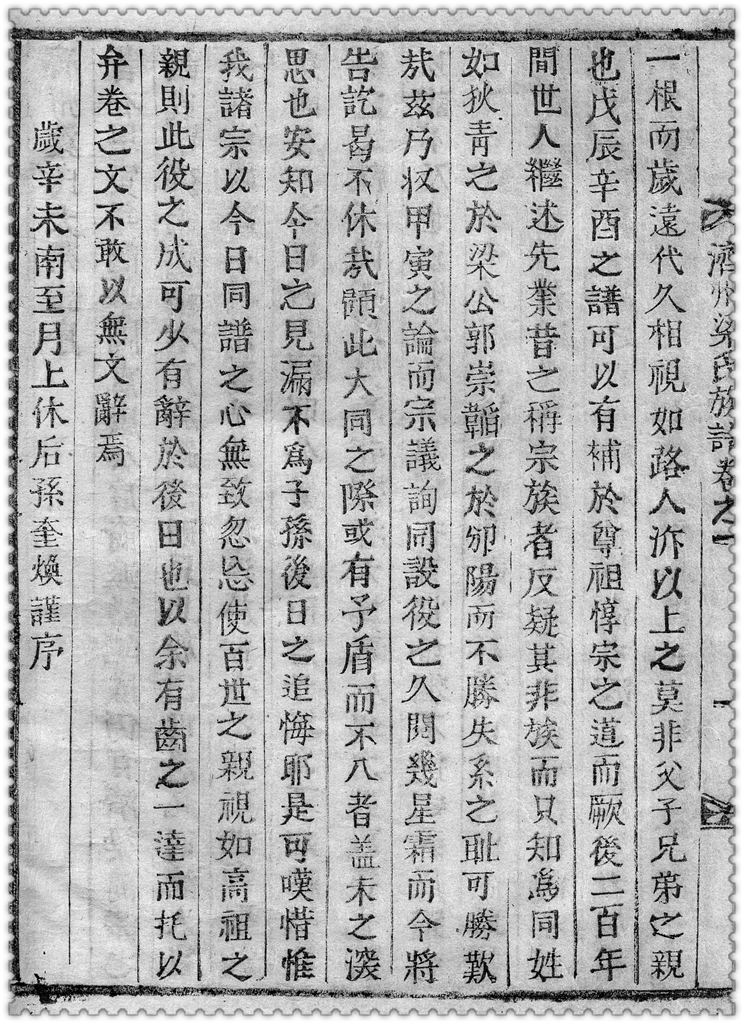 濟州梁氏族譜卷之一
一根而歲遠代久相視如路人泝以上之莫非父子兄弟之親
也戊辰辛酉之譜可以有補於尊祖惇宗之道而厥後二百年
間世人繼述先業昔之稱宗族者反疑其非族而只知爲同姓
如狄青之於梁公郭崇韜之於汾陽而不勝失系之恥可勝歎
㢤玆乃収甲寅之論而宗議詢同設役之久閱幾星霜而今將
告訖曷不休㢤顧此大同之際或有矛盾而不入者盖未之深
思也安知今日之見漏不爲子孫後日之追悔耶是可嘆惜惟
我諸宗以今日同譜之心無致忽忘使百世之親視如高祖之
親則此役之成可少有辭於後日也以余有齒之一達而托以
弁卷之文不敢以無文辭焉
歲辛未南至月上休后孫奎煥謹序